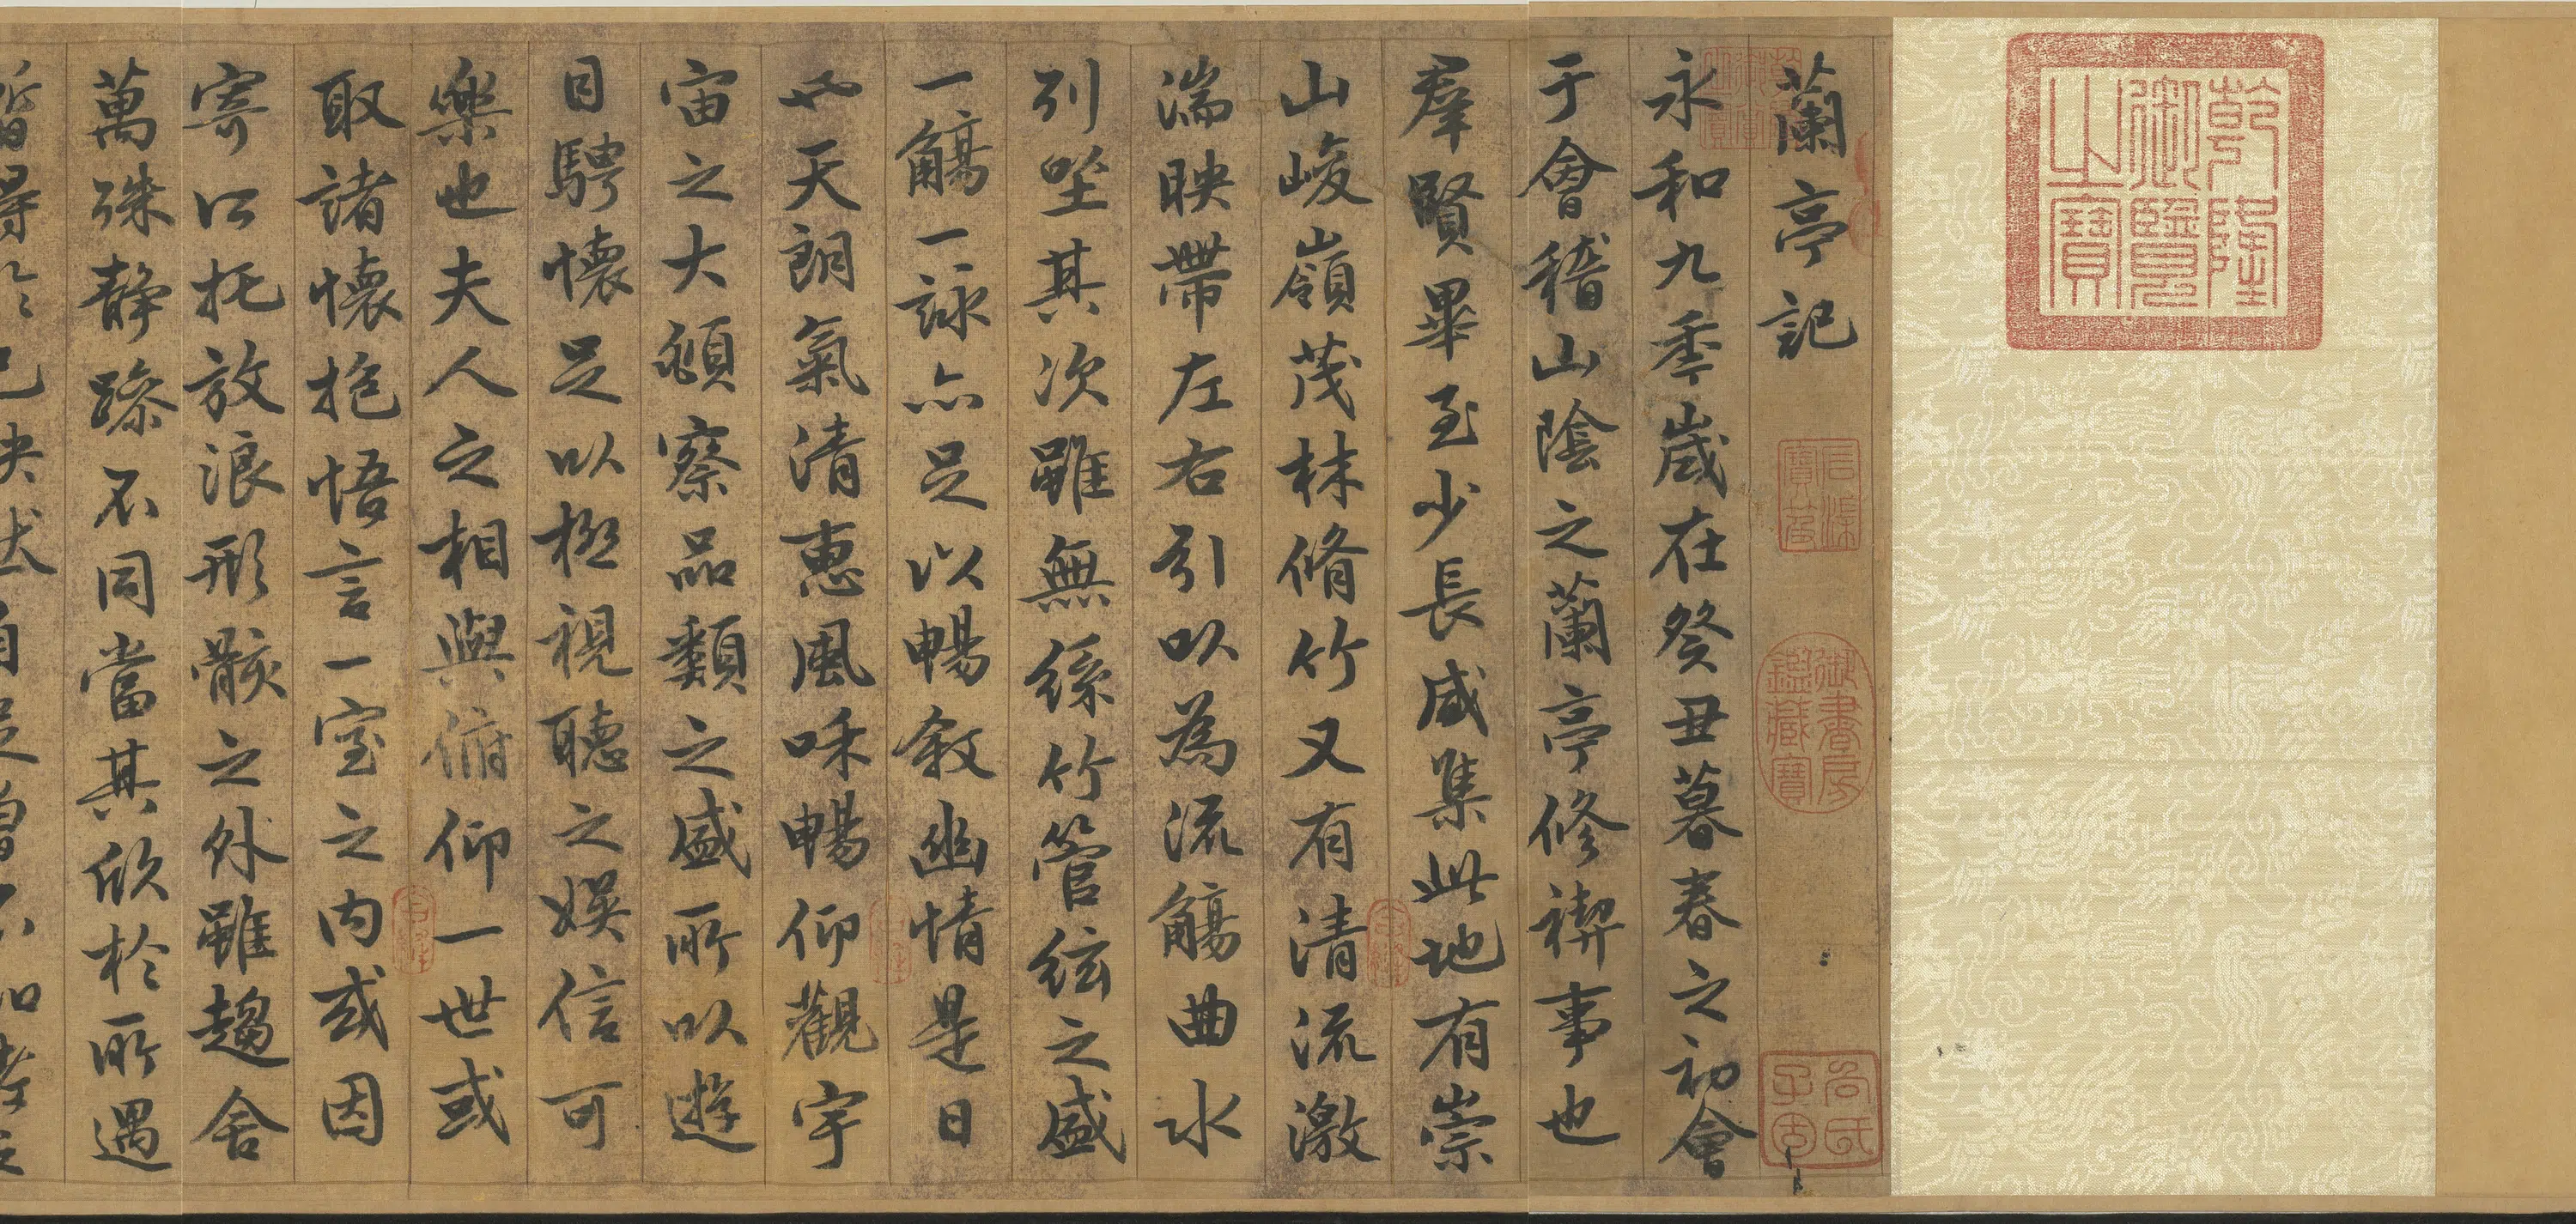 乾隆
御覽
之寶
蘭亭記
石渠
寶笈
御書房
鑑藏寶
永和九秊歲在癸丑暮春之初會
于會稽山陰之蘭亭修禊事也
羣賢畢至少長咸集此地有崇
山峻嶺茂林脩竹又有清流激
湍映帶左右引以為流觴曲水
列坐其次雖無絲竹管絃之盛
一觴一詠亦足以暢敘幽情是日
也天朗氣清惠風和暢仰觀宇
宙之大頫察品類之盛所以遊
目騁懷足以極視聽之娛信可
樂也夫人之相與俯仰一世或
取諸懷抱悟言一室之內或因
寄以托放浪形骸之外雖趨舍
萬殊靜躁不同當其欣於所遇
暫得於己快然自足曾不知老之